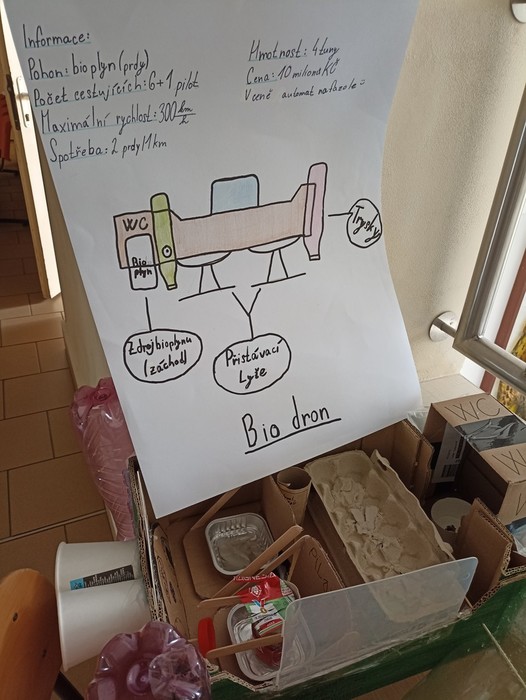 Informace:
Pohon: bioplyn (prdy)
Počet cestujících: 6+1 pilot
Maximální rychlost: 300 km/h
Spotřeba: 2 prdy/1km
Hmotnost: 4 tuny
Cena: 10 milionů Kč
V ceně automat na fazole =
WC
Bio
plyn
Trysky
Zdroj bioplynu
(záchod)
Přistávací
Lyže
Bio dron
WC